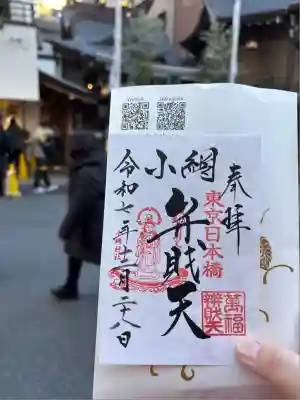 奉拝
東京日本橋
小網
弁財天
萬福
令和七年十二月二十八日